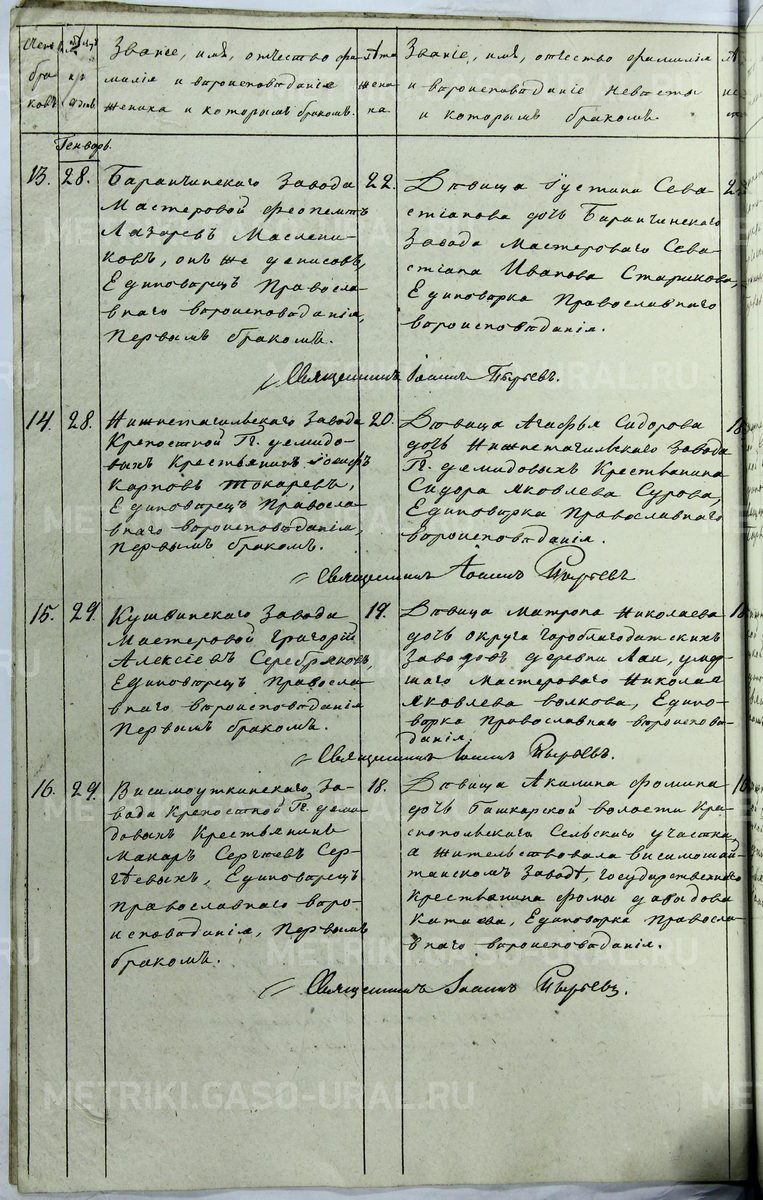 Счетъ бра ковъ.
Мѣсяцъ и день
Званіе, имя, отчество фа-
милія и вѣроисповѣданіе
жениха и которымъ бракомъ.
Лѣта жени ха.
Званіе, имя, отчество фамилія
и вѣроисповѣданіе невѣсты
и которымъ бракомъ.
Генварь.
13. 28.
Баранчинскаго Завода
Мастеровой Феопемптъ
Лазаревъ Маслени-
ковъ, онъ же Денисовъ,
Единоверецъ Правосла-
внаго вѣроисповѣданія,
Первымъ бракомъ.
22.
Дѣвица Іустина Сева-
стіанова дочь Баранчинскаго
Завода Мастероваго Сева-
стіана Иванова Старикова,
Единоверка Православнаго
вѣроисповѣданія.
Священникъ Іоаннъ Пырьевъ.
14. 28.
Нижнетагильскаго Завода
Крепостной Гг. Демидо-
выхъ Крестьянинъ Іосифъ
Карповъ Токаревъ,
Единоверецъ Правосла-
внаго вѣроисповѣданія,
Первымъ бракомъ.
20.
Дѣвица Агафья Сидорова
дочь Нижнетагильскаго Завода
Гг. Демидовыхъ Крестьянина
Сидора Яковлева Сурова,
Единоверка Православнаго
вѣроисповѣданія.
Священникъ Іоаннъ Пырьевъ
15. 29.
Кушвинскаго Завода
Мастеровой Григорій
Алексіевъ Серебряковъ,
Единоверецъ Правосла-
внаго вѣроисповѣданія
Первымъ бракомъ.
19.
Дѣвица Матрона Николаева
дочь округа Гороблагодатскихъ
Заводовъ деревни Лаи, умер-
шаго Мастероваго Николая
Яковлева Волкова, Едино-
верка Православнаго вѣроисповѣ-
данія.
Священникъ Іоаннъ Пырьевъ.
16. 29.
Висимоуткинскаго За-
вода Крепостной Гг. Деми-
довыхъ Крестьянинъ
Макаръ Сергѣевъ Сер-
гѣевыхъ, Единоверецъ
Православнаго веро-
исповѣданія, Первымъ
бракомъ.
18.
Дѣвица Акилина Фомина
дочь Башкарской волости Кра-
снопольскаго Сельскаго участка,
а жительствовала Висимошай-
танскомъ Заводѣ, Государственнаго
Крестьянина Фомы Давыдова
Катаева, Единоверка Правосла-
внаго вѣроисповѣданія.
Священникъ Іоаннъ Пырьевъ.
METRIKI.GASO-URAL.RU